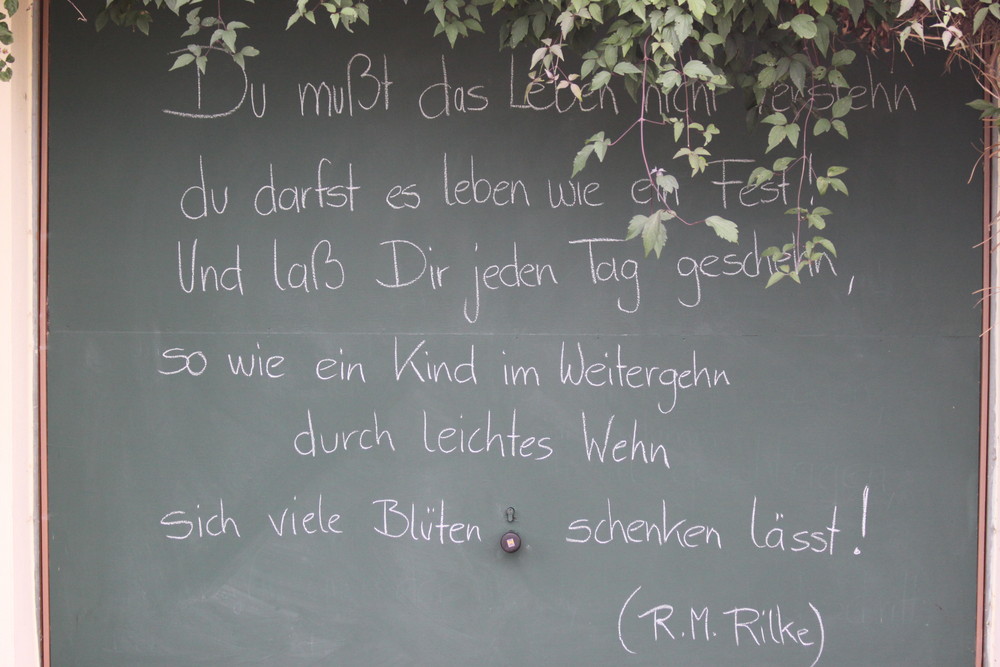 Du mußt das Leben nicht verstehn
du darfst es leben wie ein Fest!
Und laß Dir jeden Tag geschehn,
so wie ein Kind im Weitergehn
durch leichtes Wehn
sich viele Blüten schenken lässt!
(R.M. Rilke)